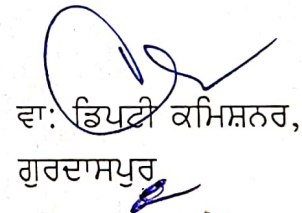 ਵਾ: ਡਿਪਟੀ ਕਮਿਸ਼ਨਰ,
ਗੁਰਦਾਸਪੁਰ